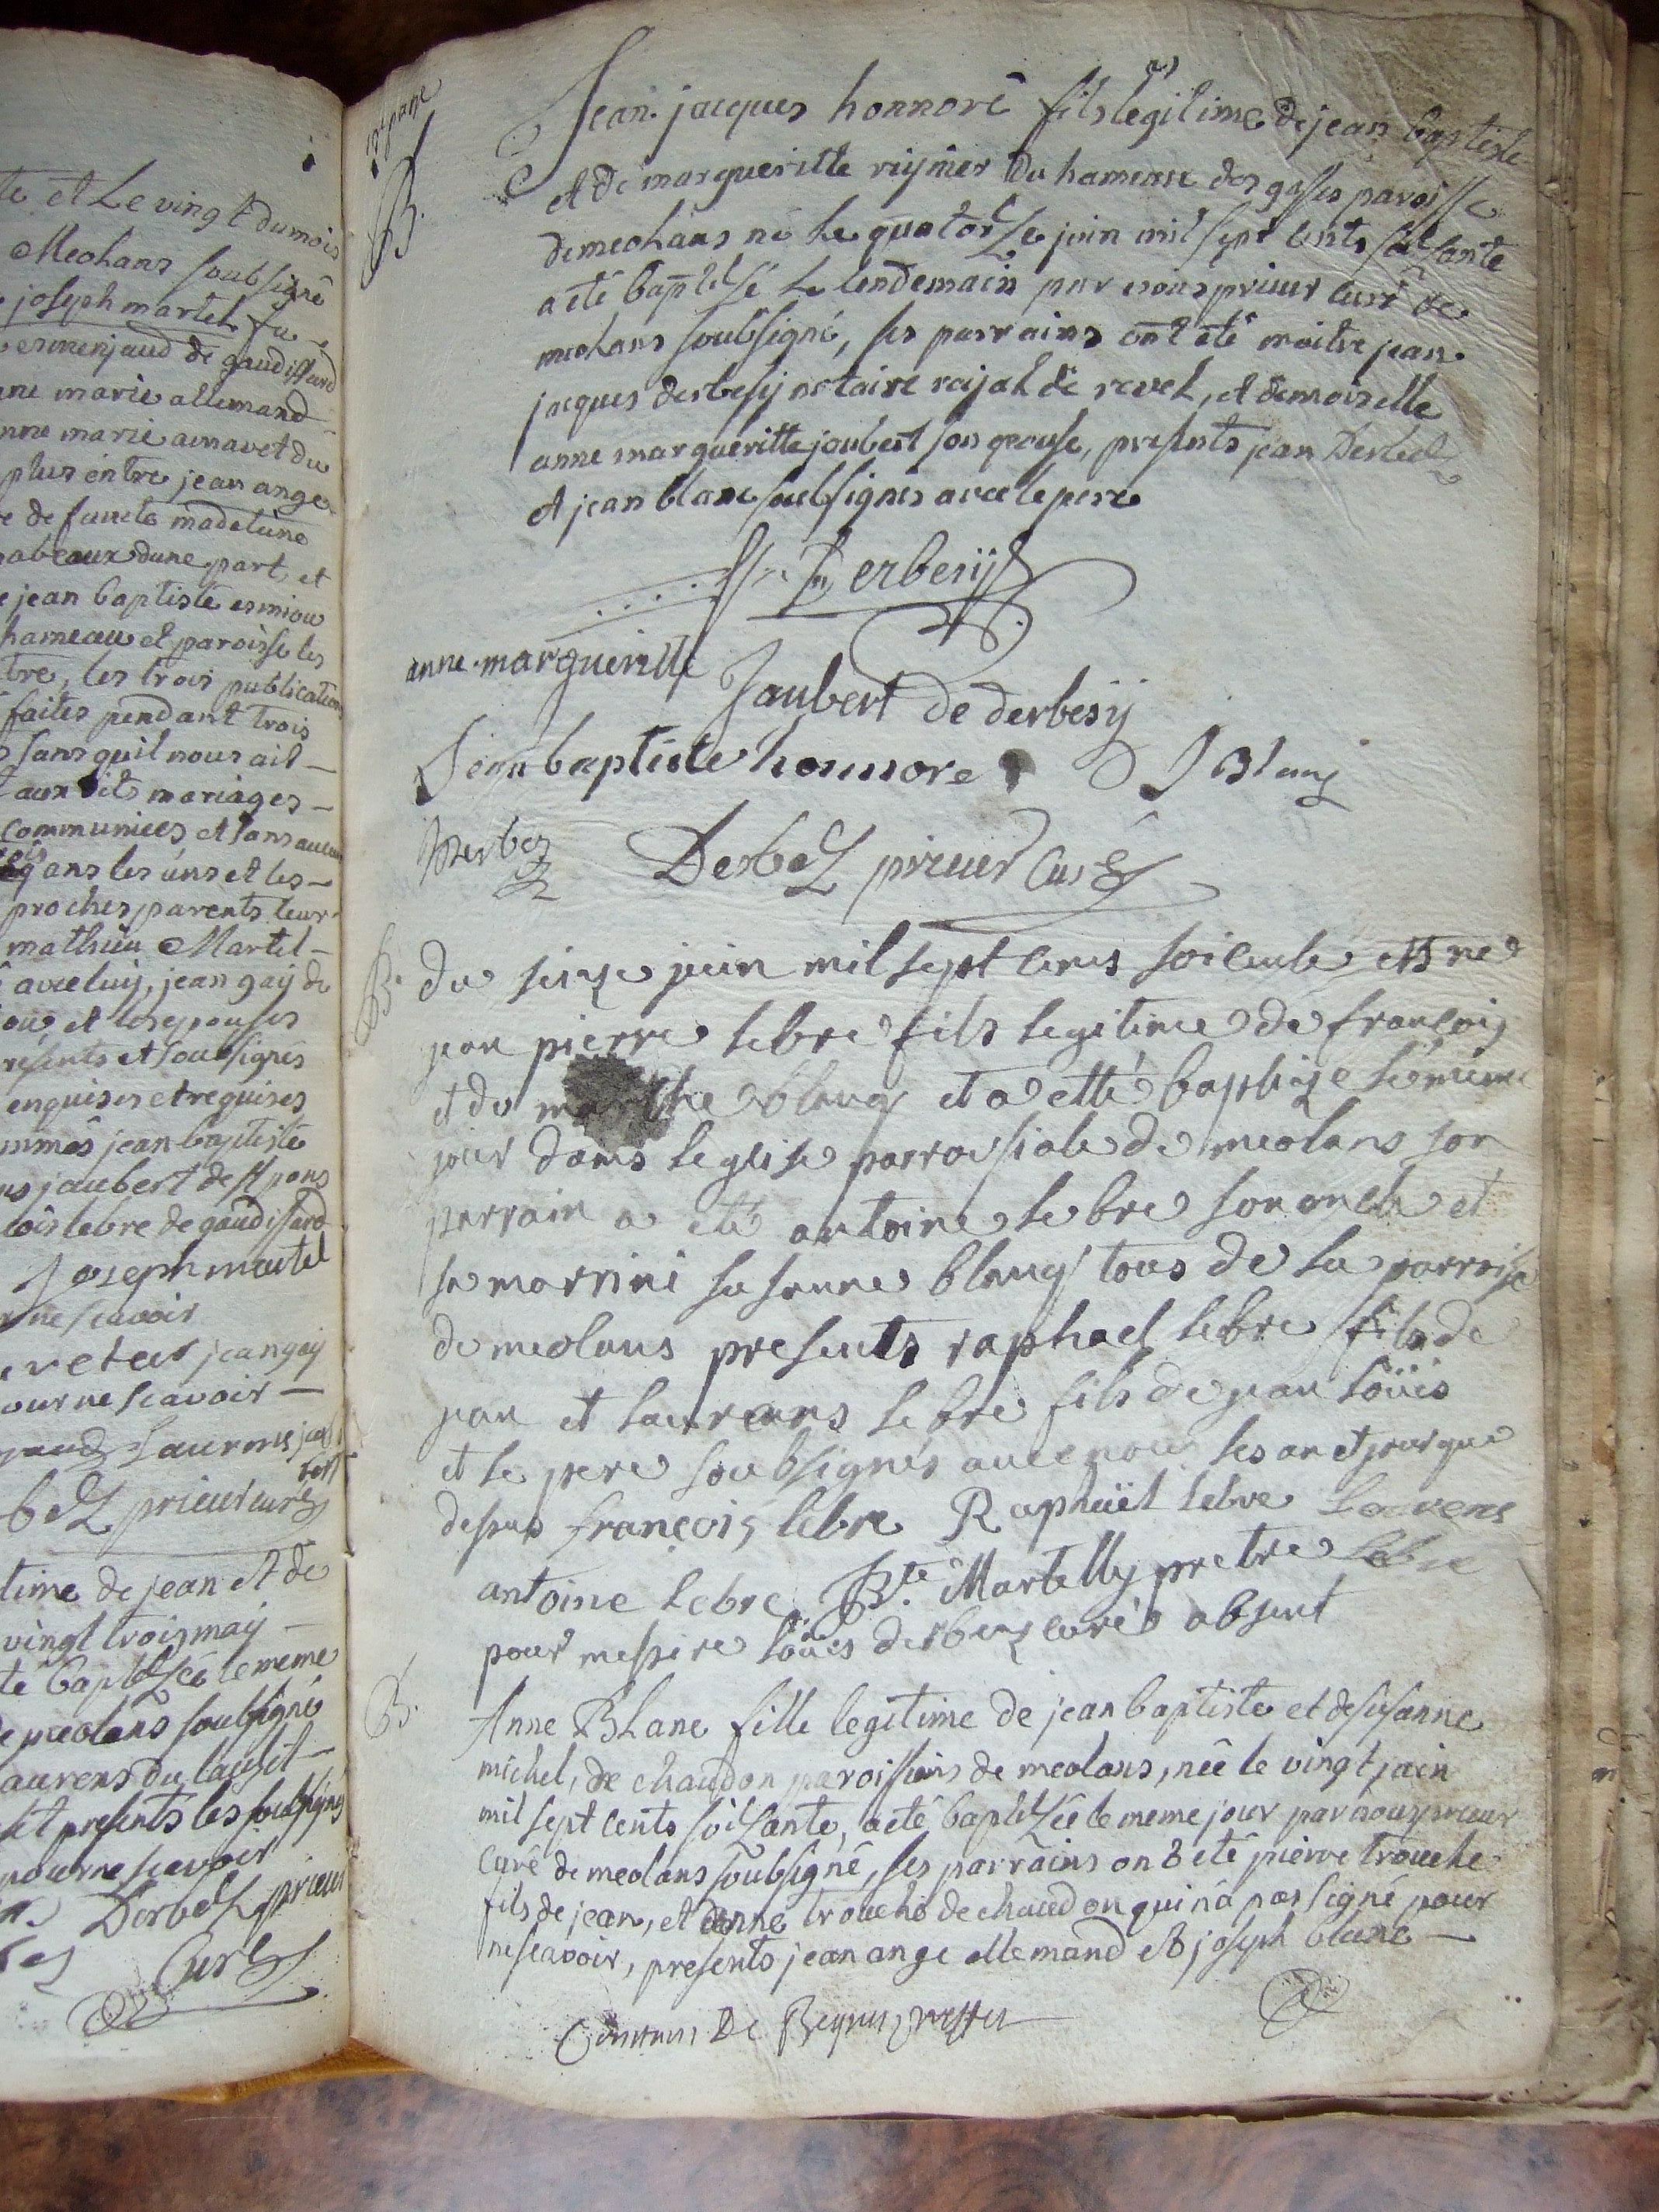 te et Le vingt du mois
Meolans soubsigné
joseph martel fu
ermenjaud de gaudissard
anne marie allemand
anne marie arnavet du
plus entre jean ange
de functe madeleine
dune part, et
jean baptiste
hameau et paroisse les
tre, les trois publications
faites pendant trois
sans quil nous ait
aux dits mariages
communiees et sans aucun
dans les uns et les
proches parents leur
mathieu Martel
avec luy, jean gay de
ou et les epouses
résents et soubsignés
enquises et requises
ommés jean baptiste
ns jaubert de st pons
cois lebre de gaudissard
Joseph martel
ne scavoir
jean gay
our ne scavoir
Laurens
bez prieur curé
time de jean et de
vingt trois may
té baptisée le meme
de meolans soubsigné
aurens du lauset
et presents les soubsignés
pour ne scavoir
Derbez prieur
Curé
1re page
B.
Jean jacques honnoré fils legitime de jean baptiste
et de margueritte reynier du hameau des gasses paroisse
de meolans né le quatorze juin mil sept cents soixante
a eté baptisé le lendemain par nous prieur curé de
meolans soubsigné, ses parrains ont eté maitre jean
jacques derbesy notaire roijal de revel, et demoiselle
anne margueritte joubert son epouse, presents jean Derbez
et jean blanc soubsignes avec le pere
Derbesy
anne margueritte Jaubert de derbesy
Jean baptiste honnore J Blanc
Derbez Derbez prieur Curé
B.
du seize juin mil sept cens soicente est ne
jean pierre lebre fils legitime de françois
et de marthe blanc et a etté baptize le meme
jour dans leglise parroissiale de meolans son
parrain a eté antoine lebre son oncle et
sa marrine susanne blanc tous de la parroisse
de meolans presents raphael lebre fils de
jean et laurens lebre fils de jean loüis
et le pere soubsignés avec nous les an et jour que
dessus françois lebre Raphaël lebre Laurens
antoine lebre Bte. Martelly pretre Lebre
pour messire loüis derbez curé absent
B.
Anne Blanc fille legitime de jean baptiste et de susanne
michel, de chaudon paroissiens de meolans, née le vingt juin
mil sept cents soixante, a eté baptisée le meme jour par nous prieur
curé de meolans soubsigné, ses parrains ont eté pierre trouche
fils de jean, et anne trouche de chaudon qui n'a pas signé pour
ne scavoir, presents jean ange allemand et joseph blanc